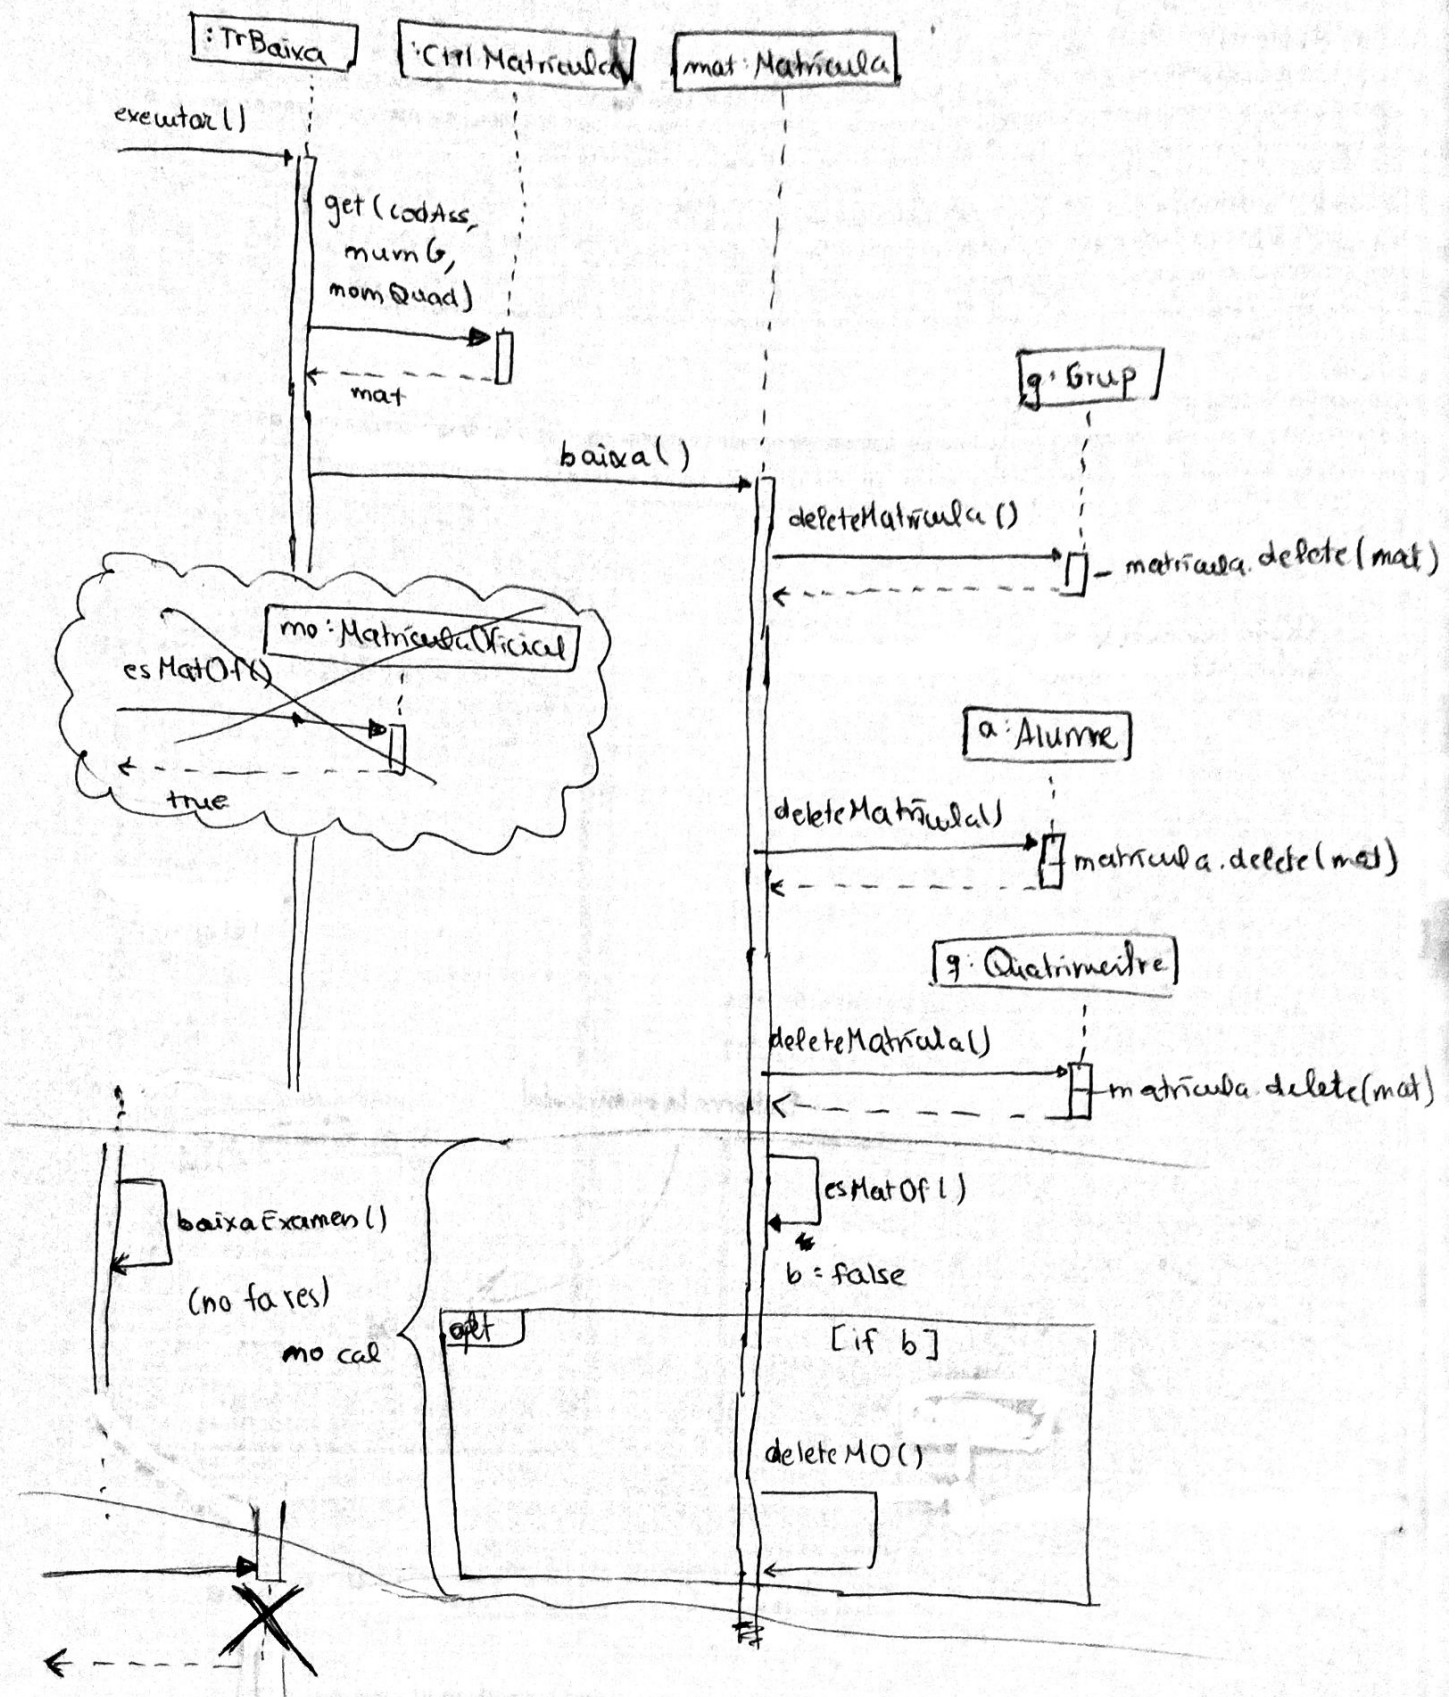 :TrBaixa
:CtrlMatrícula
mat:Matrícula
executar()
get(codAss,
numG,
nomQuad)
mat
g:Grup
baixa()
deleteMatrícula()
matrícula.delete(mat)
mo:MatrículaOficial
esMatOf()
true
a:Alumne
deleteMatrícula()
matrícula.delete(mat)
q:Quatrimestre
deleteMatrícula()
matrícula.delete(mat)
esMatOf()
b=false
baixaExamen()
(no fa res)
no cal
opt
[if b]
deleteMO()